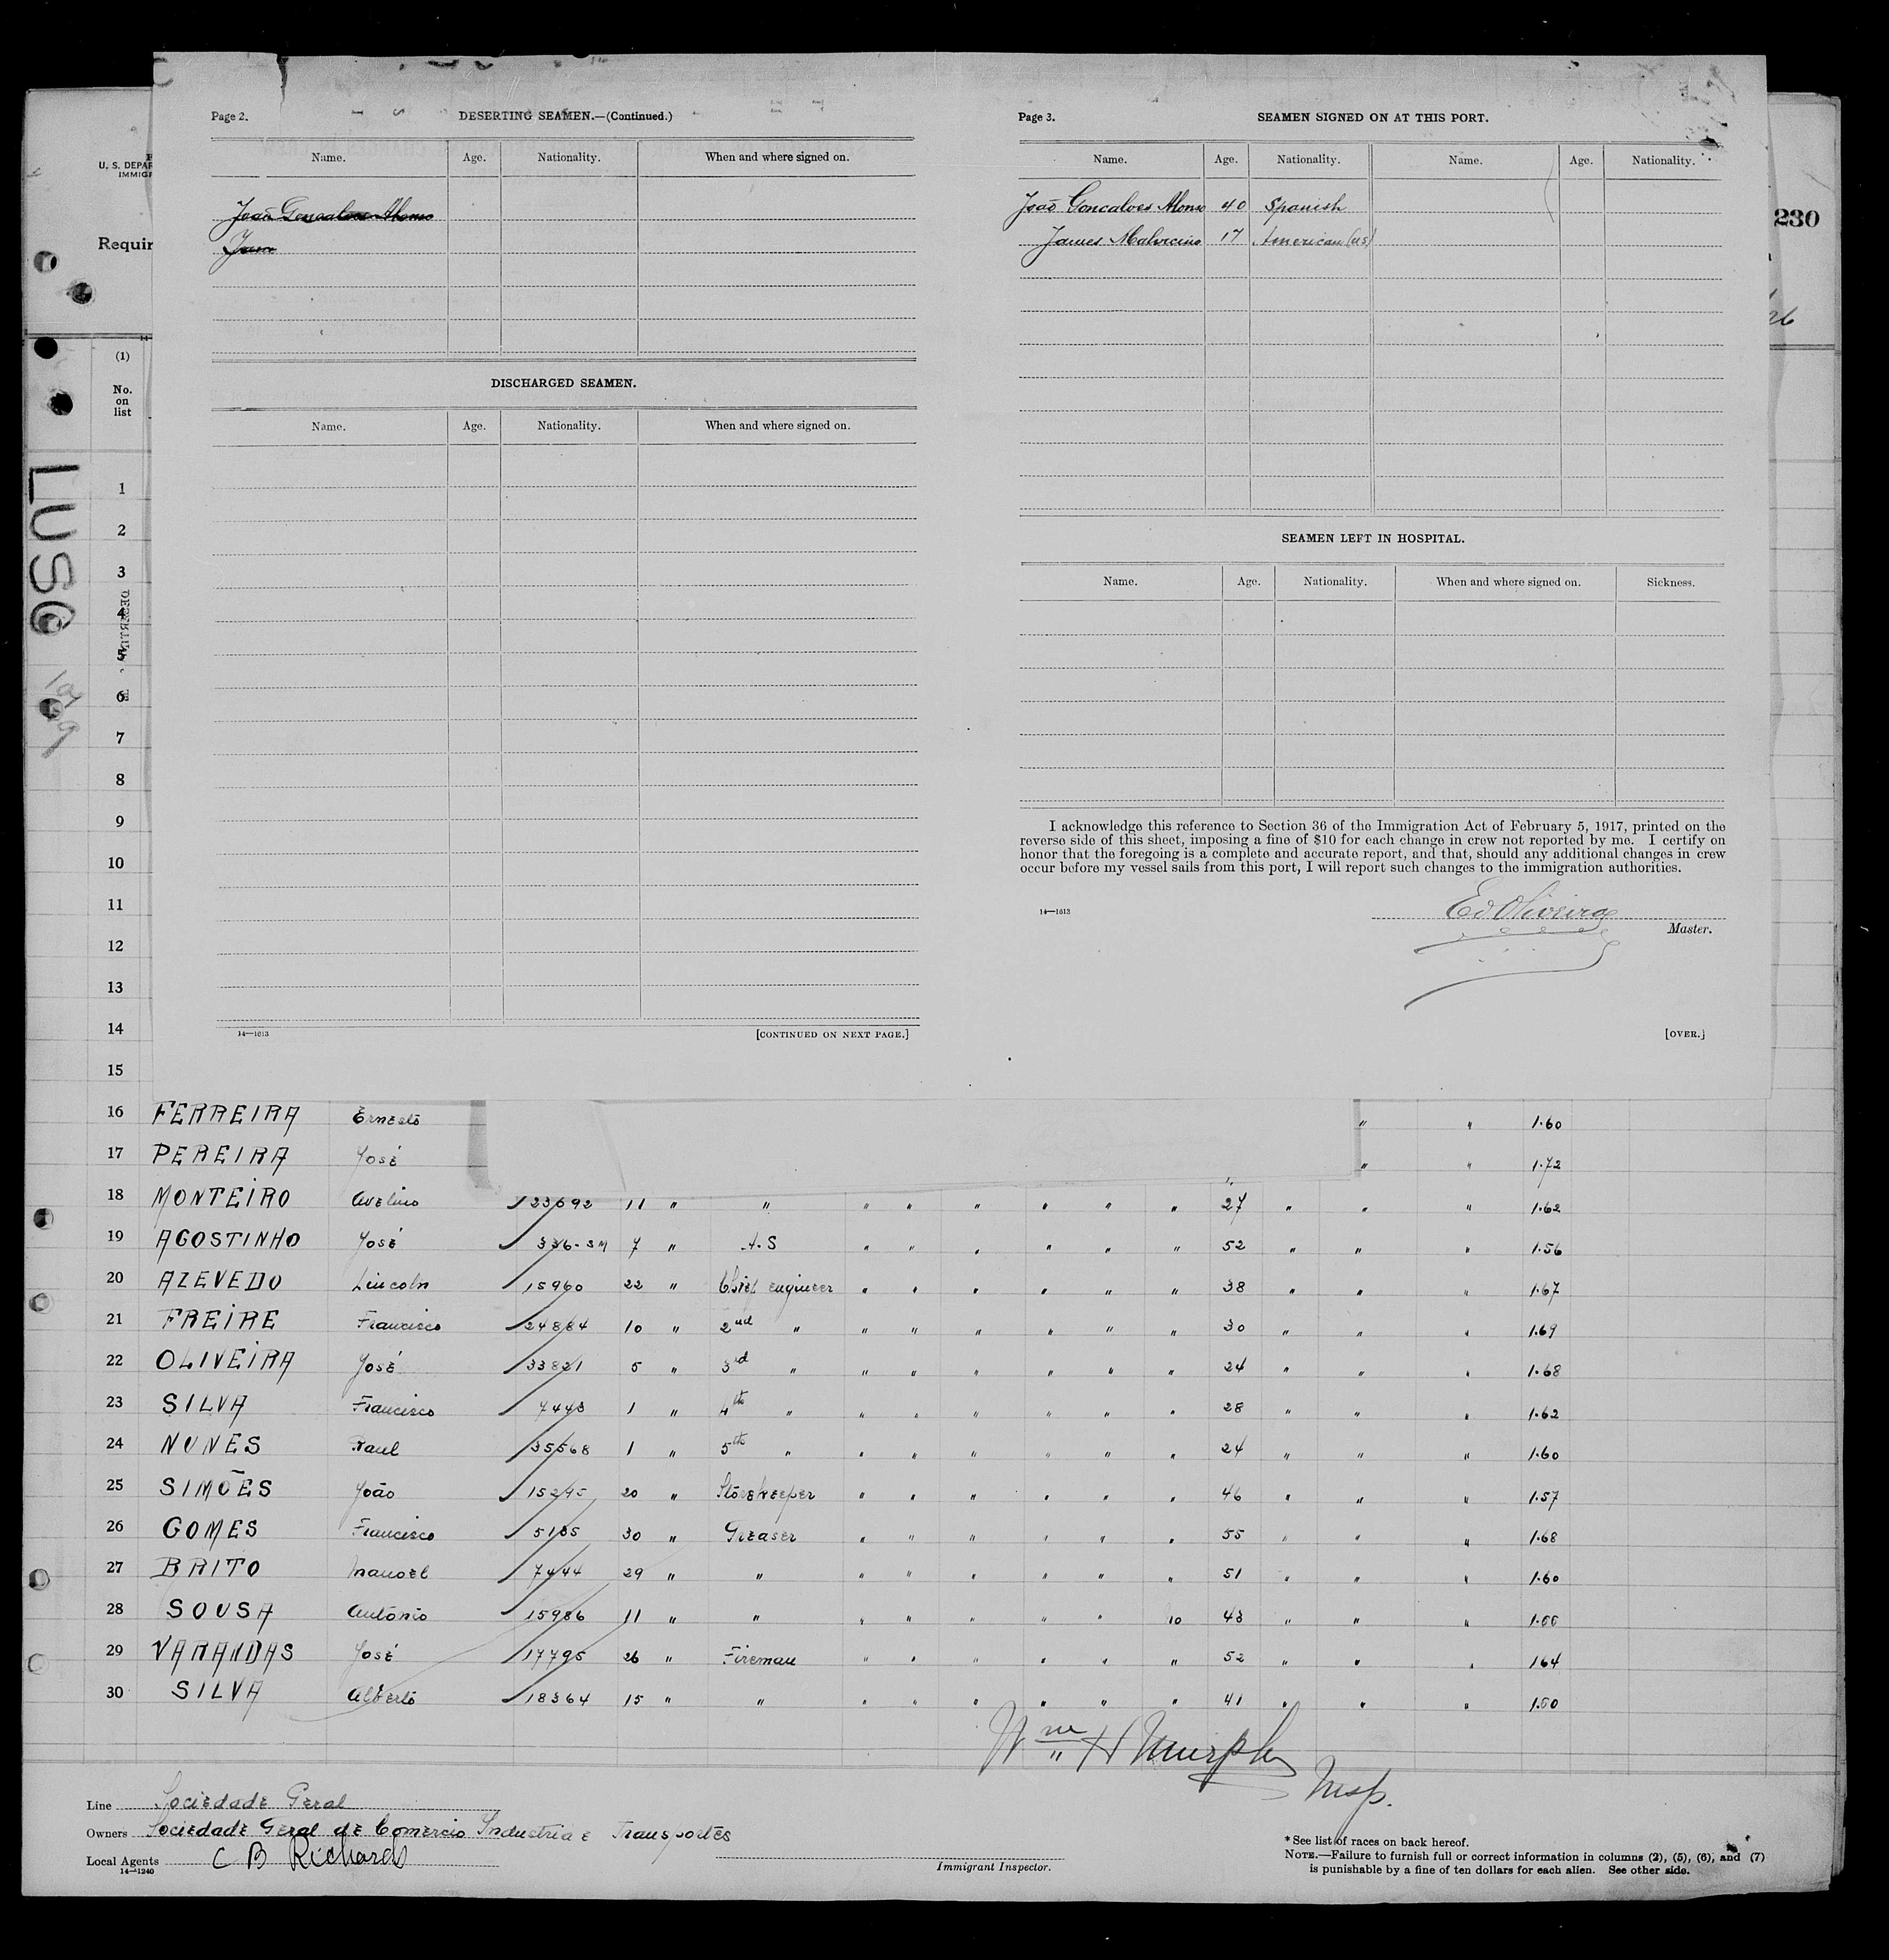 Page 2.
DESERTING SEAMEN.—(Continued.)
Name. Age. Nationality. When and where signed on.
João Goncalves Alonso
DISCHARGED SEAMEN.
Name. Age. Nationality. When and where signed on.
14—1613
[CONTINUED ON NEXT PAGE.]
Page 3.
SEAMEN SIGNED ON AT THIS PORT.
Name. Age. Nationality. Name. Age. Nationality.
João Goncalves Alonso 40 Spanish
James Malvicino 17 American (US)
SEAMEN LEFT IN HOSPITAL.
Name. Age. Nationality. When and where signed on. Sickness.
I acknowledge this reference to Section 36 of the Immigration Act of February 5, 1917, printed on the
reverse side of this sheet, imposing a fine of $10 for each change in crew not reported by me. I certify on
honor that the foregoing is a complete and accurate report, and that, should any additional changes in crew
occur before my vessel sails from this port, I will report such changes to the immigration authorities.
14—1613
Ed Oliveira
Master.
[OVER.]
U. S. DEPAR
IMMIGR
Requir
230
(1)
No.
on
list
LUSO
1
2
3
4
5
6
7
8
9
10
11
12
13
14
15
16 FERREIRA Ernesto " " 1.60
17 PEREIRA José " " 1.72
18 MONTEIRO Avelino 23692 11 " " " " " " " " 27 " " " 1.62
19 AGOSTINHO José 336-SM 7 " A.S " " " " " " 52 " " " 1.56
20 AZEVEDO Lincoln 15960 22 " Chief engineer " " " " " " 38 " " " 1.67
21 FREIRE Francisco 24884 10 " 2nd " " " " " " " 30 " " " 1.69
22 OLIVEIRA José 33821 5 " 3rd " " " " " " " 24 " " " 1.68
23 SILVA Francisco 7443 1 " 4th " " " " " " " 28 " " " 1.62
24 NUNES Raul 35568 1 " 5th " " " " " " " 24 " " " 1.60
25 SIMÕES João 15245 20 " Storekeeper " " " " " " 46 " " " 1.57
26 GOMES Francisco 5185 30 " Greaser " " " " " " 55 " " " 1.68
27 BRITO Manoel 7444 29 " " " " " " " " 51 " " " 1.60
28 SOUSA António 15986 11 " " " " " " " 10 43 " " "
29 VARANDAS José 17795 26 " Fireman " " " " " " 52 " " " 164
30 SILVA Alberto 18364 15 " " " " " " " " 41 " " "
Wm H Murphy
Insp.
Line Sociedade Geral
Owners Sociedade Geral de Comercio Industria e Transportes
Local Agents C B Richards
14—1240
Immigrant Inspector.
* See list of races on back hereof.
NOTE.—Failure to furnish full or correct information in columns (2), (5), (6), and (7)
is punishable by a fine of ten dollars for each alien. See other side.